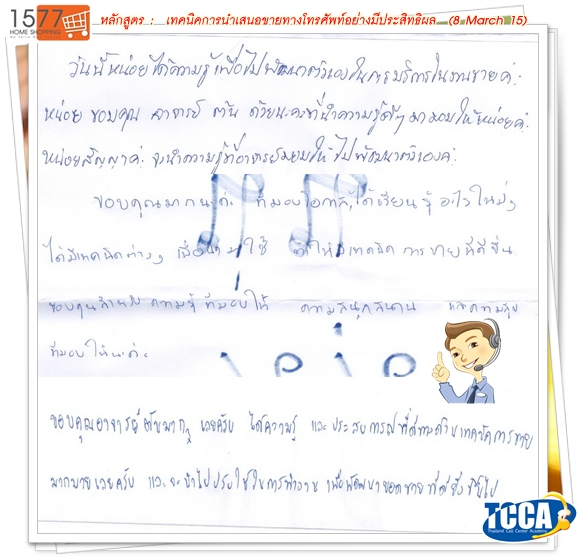 1577
HOME SHOPPING
หลักสูตร : เทคนิคการนำเสนอขายทางโทรศัพท์อย่างมีประสิทธิผล (8 March 15)
วันนี้หน่อยได้ความรู้เพื่อไปพัฒนาตัวเองในการบริการในงานขายค่ะ
หน่อย ขอบคุณ อาจารย์ ต้น ด้วยนะคะที่นำความรู้ดีๆ มามอบให้หน่อยค่ะ
หน่อยสัญญาค่ะ จะนำความรู้ที่อาจารย์มอบให้ไปพัฒนาตัวเองค่ะ
ขอบคุณมากนะค่ะ ที่มอบโอกาสได้เรียนรู้อะไรใหม่ๆ
ได้มีเทคนิคต่างๆ เพื่อนำมาใช้ ให้มีเทคนิค การขายที่ดีขึ้น
ขอบคุณสำหรับ ความรู้ที่มอบให้ ความสนุกสนาน และความสุข
ที่มอบให้นะค่ะ
ขอบคุณอาจารย์ต้นมากๆ เลยครับ ได้ความรู้ และประสบการณ์ที่ดีทางด้านเทคนิคการขาย
มากมายเลยครับ และจะนำไปปรับใช้ในการทำงาน เพื่อพัฒนายอดขายที่ดียิ่งขึ้นไป
TCCA
Thailand Call Center Academy